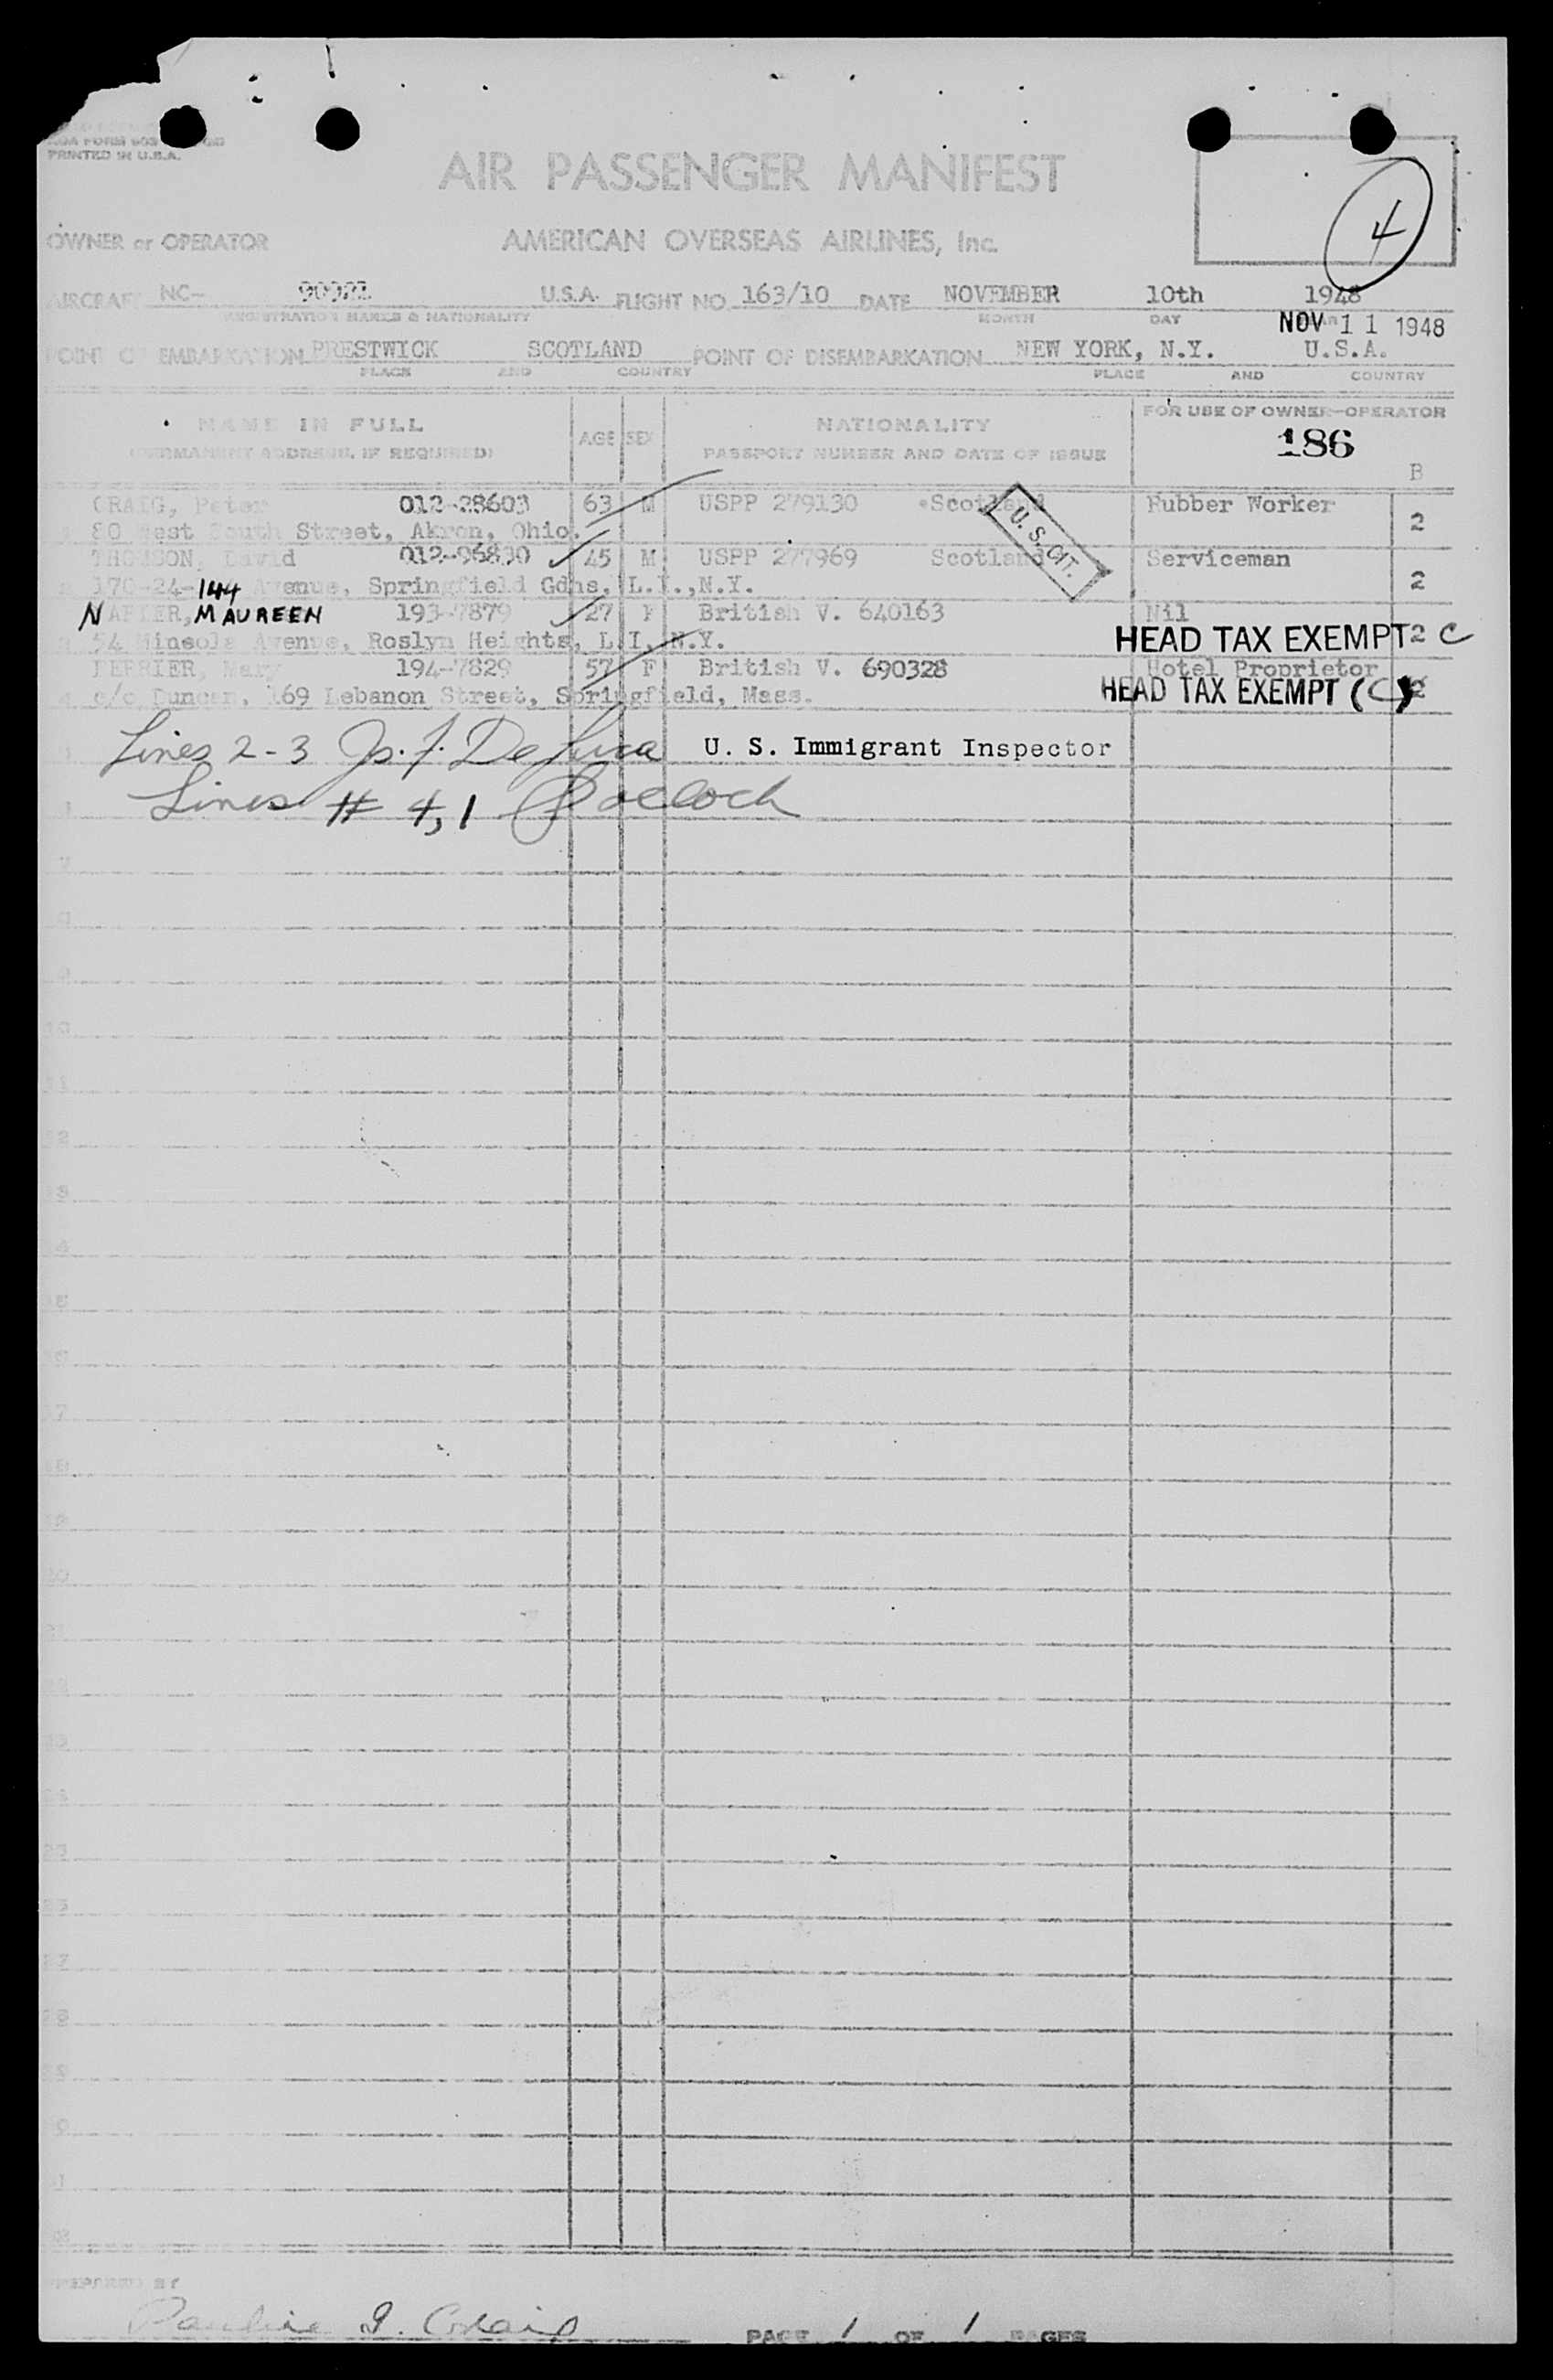 PRINTED IN U.S.A.
AIR PASSENGER MANIFEST
4
OWNER or OPERATOR AMERICAN OVERSEAS AIRLINES, Inc.
AIRCRAFT NC- U.S.A. FLIGHT NO. 163/10 DATE NOVEMBER 10th 1948
REGISTRATION MARKS & NATIONALITY MONTH DAY NOV 11 1948
POINT OF EMBARKATION PRESTWICK SCOTLAND POINT OF DISEMBARKATION NEW YORK, N.Y. U.S.A.
PLACE AND COUNTRY PLACE AND COUNTRY
NAME IN FULL AGE SEX NATIONALITY FOR USE OF OWNER-OPERATOR
(PERMANENT ADDRESS, IF REQUIRED) PASSPORT NUMBER AND DATE OF ISSUE 186
B
CRAIG, Peter 012-28603 63 M USPP 279130 Scotland Rubber Worker 2
80 West South Street, Akron, Ohio.
U.S. CIT.
THOMSON, David 012-96830 45 M USPP 277969 Scotland Serviceman 2
170-24-144 Avenue, Springfield Gdns, L.I.,N.Y.
NAPIER, MAUREEN 193-7879 27 F British V. 640163 Nil
54 Mineola Avenue, Roslyn Heights, L.I. N.Y. HEAD TAX EXEMPT 2 C
PERRIER, Mary 194-7829 57 F British V. 690328 Hotel Proprietor
c/o Duncan, 169 Lebanon Street, Springfield, Mass. HEAD TAX EXEMPT (C) 2
Lines 2-3 Js. F. De Luca U. S. Immigrant Inspector
Lines # 4,1
PREPARED BY
Pauline PAGE 1 OF 1 PAGES